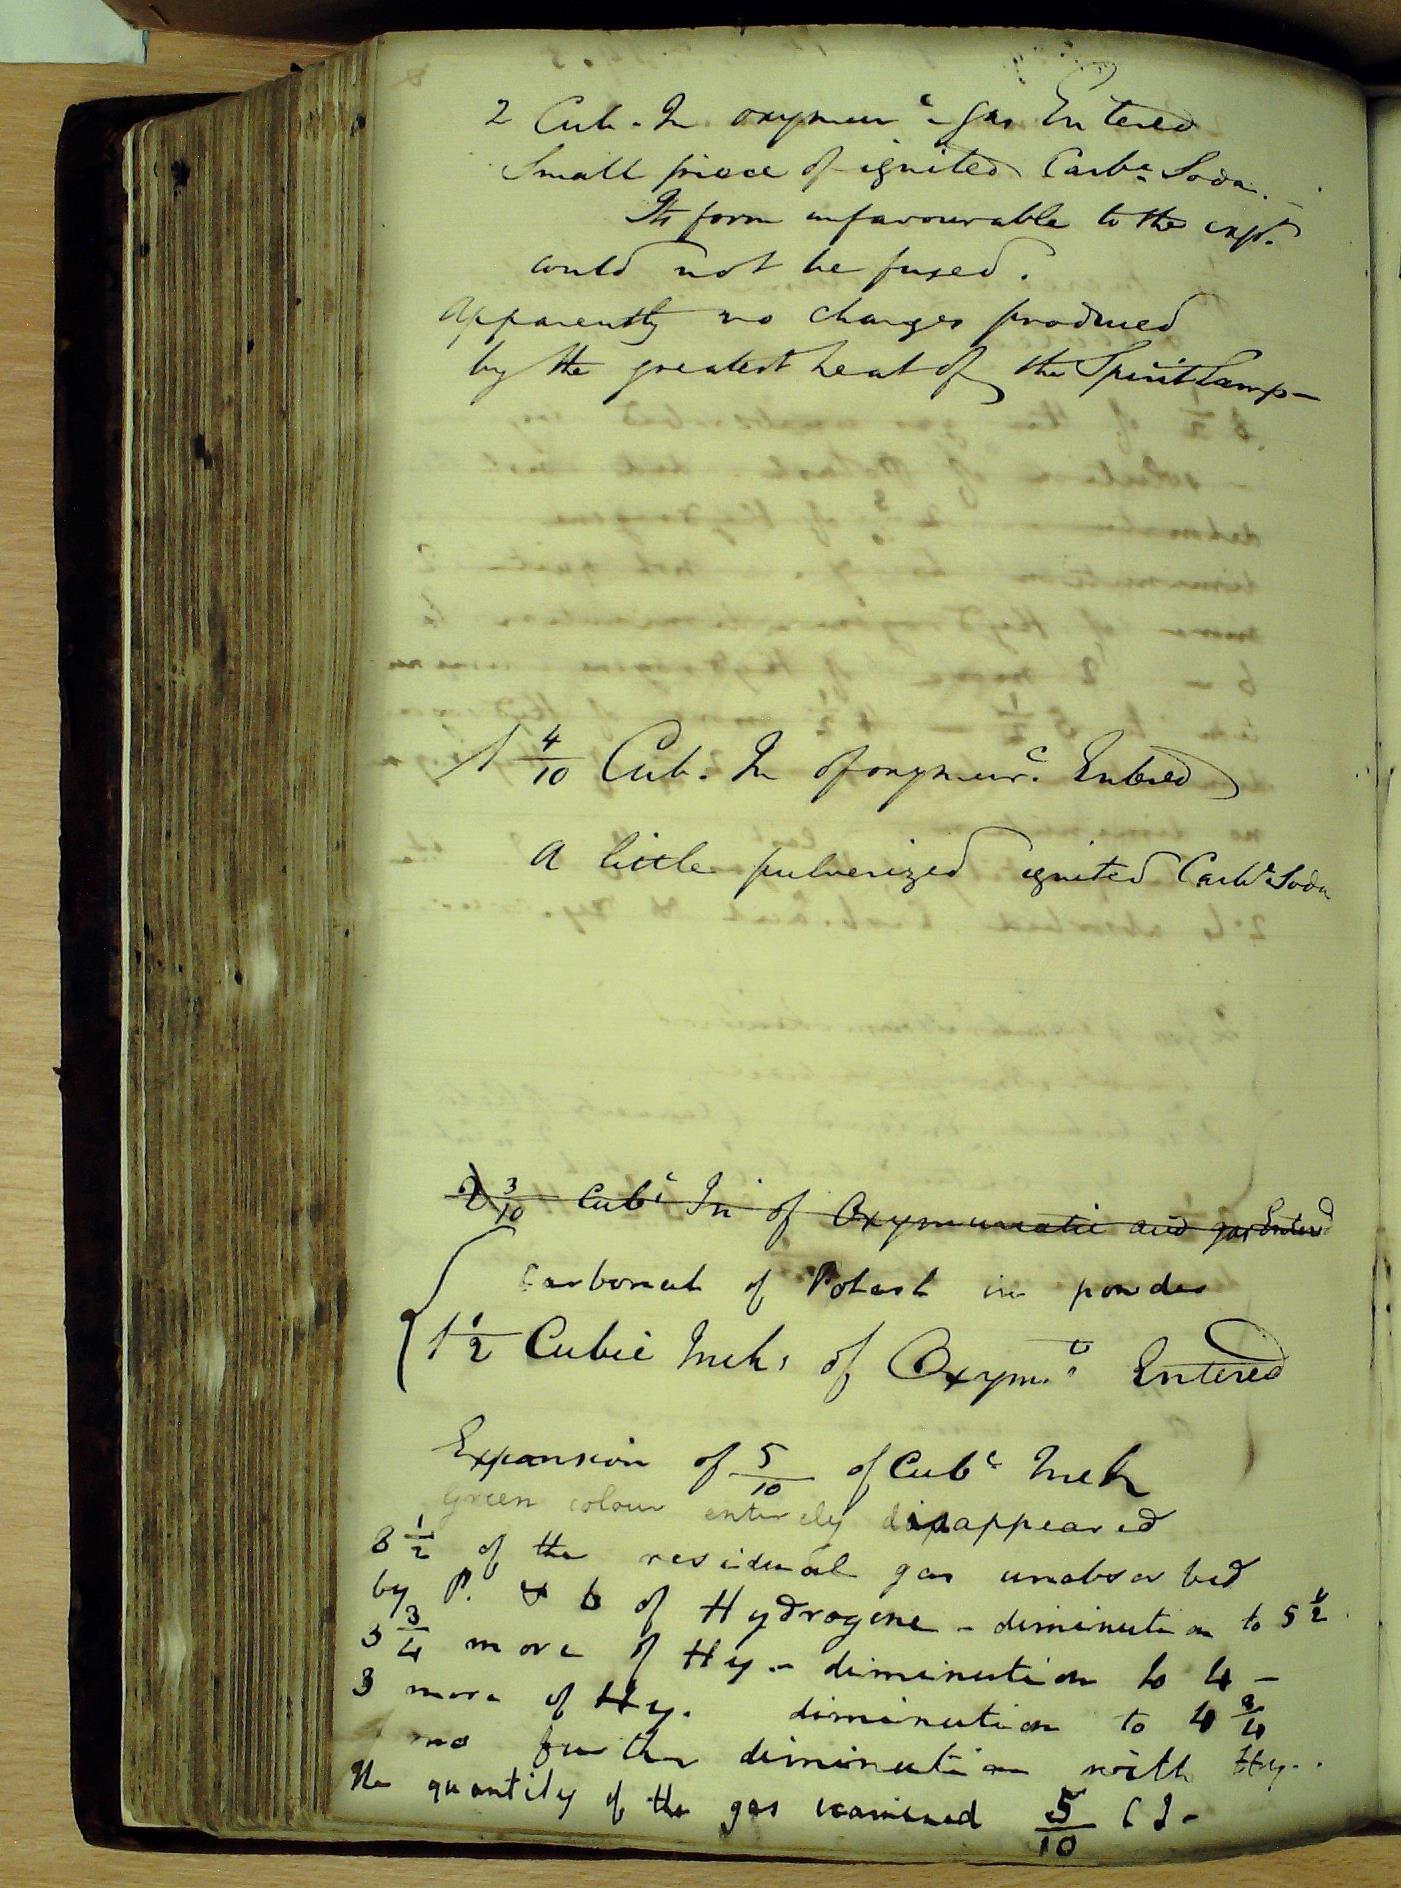 2 Cub. In oxymur c gas Entered
Small piece of ignited Carbe. Soda.
Its form unfavourable to the expt.
could not be fused.
Apparently no changes produced
by the greatest heat of the Spirit Lamp -
1 4/10 Cub. In of oxymurc. Entered
A little pulverized ignited Carbe Soda
2 3/10 Cubc In of Oxymuriatic acid gas Entered
Carbonate of Potash in powder
1 1/2 Cubic Inchs of Oxym.c Entered
Expansion of 5/10 of Cubc Inch
Green colour entirely disappeared
8 1/2 of the residual gas unabsorbed
by P. & 6 of Hydrogene - diminution to 5 1/2
3 3/4 more of Hy. - diminution to 4 -
3 more of Hy. diminution to 4 3/4
no further diminution with Hy..
The quantity of the gas examined 5/10 C I -